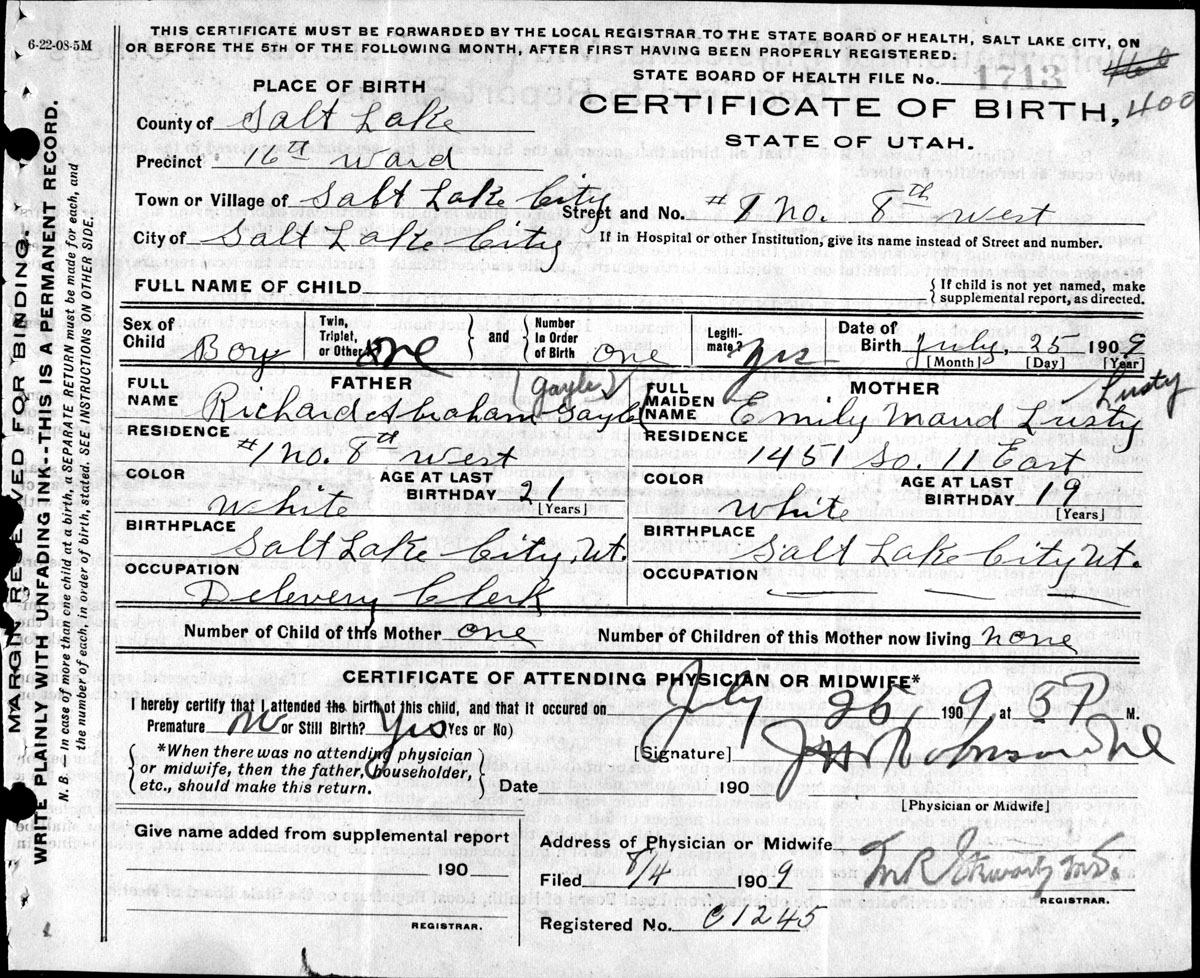 6-22-08-5M
THIS CERTIFICATE MUST BE FORWARDED BY THE LOCAL REGISTRAR TO THE STATE BOARD OF HEALTH, SALT LAKE CITY, ON
OR BEFORE THE 5TH OF THE FOLLOWING MONTH, AFTER FIRST HAVING BEEN PROPERLY REGISTERED.
STATE BOARD OF HEALTH FILE No. 1713 460
CERTIFICATE OF BIRTH, 400
STATE OF UTAH.
PLACE OF BIRTH
County of Salt Lake
Precinct 16th Ward
Town or Village of Salt Lake City
Street and No. #1 No. 8th West
City of Salt Lake City
If in Hospital or other Institution, give its name instead of Street and number.
FULL NAME OF CHILD
{ If child is not yet named, make
supplemental report, as directed.
Sex of Child Boy
Twin, Triplet, or Other? one
and
Number in Order of Birth one
Legitimate? yes
Date of Birth July, 25 1909
[Month] [Day] [Year]
FATHER
FULL NAME Richard Abraham Gayle (Gayle)
RESIDENCE #1 No. 8th West
COLOR White
AGE AT LAST BIRTHDAY 21 [Years]
BIRTHPLACE Salt Lake City Ut.
OCCUPATION Delevery Clerk
MOTHER
FULL MAIDEN NAME Emily Maud Lusty Lusty
RESIDENCE 1451 So. 11 East
COLOR White
AGE AT LAST BIRTHDAY 19 [Years]
BIRTHPLACE Salt Lake City Ut.
OCCUPATION
Number of Child of this Mother one
Number of Children of this Mother now living none
CERTIFICATE OF ATTENDING PHYSICIAN OR MIDWIFE*
I hereby certify that I attended the birth of this child, and that it occured on July 25, 1909, at 5 P M.
Premature No or Still Birth? Yes (Yes or No)
*When there was no attending physician
or midwife, then the father, householder,
etc., should make this return.
[Signature]
Date 190
[Physician or Midwife]
Give name added from supplemental report
190
REGISTRAR.
Address of Physician or Midwife
Filed 8/4 1909
REGISTRAR.
Registered No. C1245
MARGIN RESERVED FOR BINDING
WRITE PLAINLY WITH UNFADING INK--THIS IS A PERMANENT RECORD.
N. B.—In case of more than one child at a birth, a SEPARATE RETURN must be made for each, and
the number of each, in order of birth, stated. SEE INSTRUCTIONS ON OTHER SIDE.